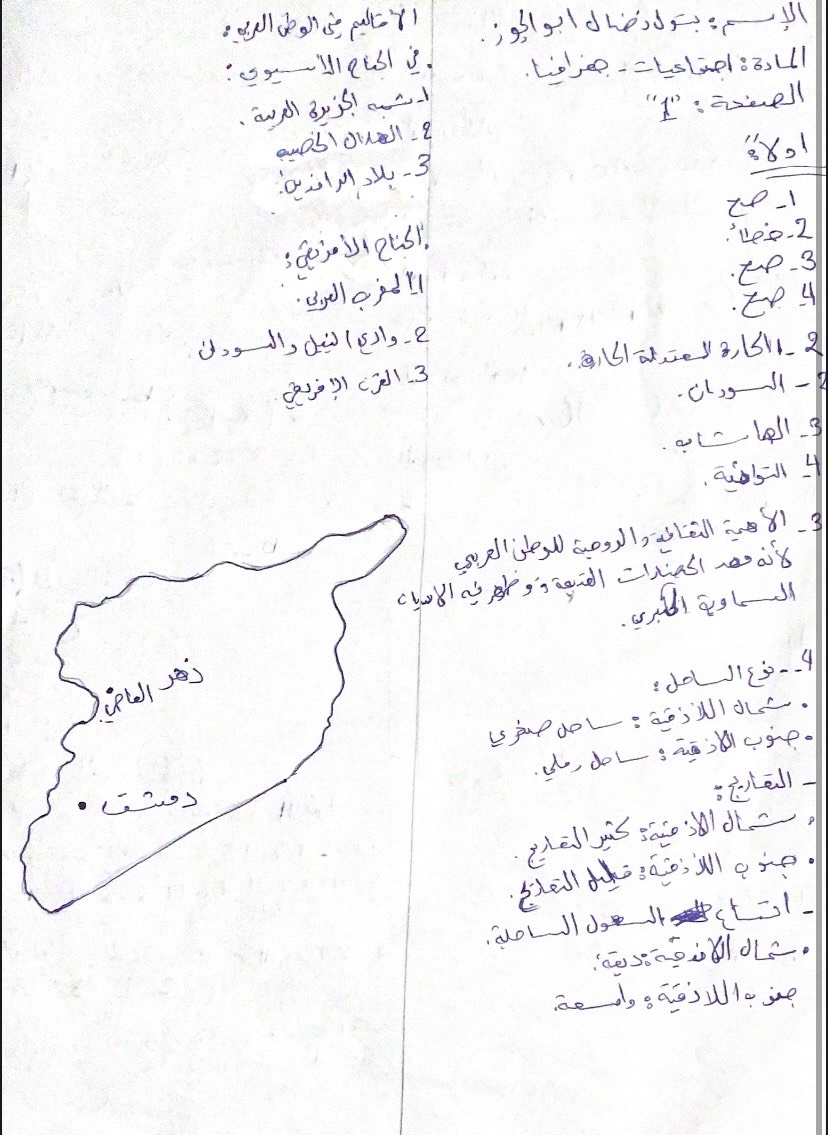 الإسم: بتول نضال ابو الجوز.
المادة: اجتماعيات - جغرافيا.
الصفحة: "1"
اولاً:
1- صح
2- خطأ.
3- صح.
4- صح.
2- 1 الحارة المعتدلة الحارة.
2- السودان.
3- الهاشاب.
4- التوافقية.
3- الأهمية الثقافية والروحية للوطن العربي
لأنه مهد الحضارات القديمة و وظهر فيه الاديان
السماوية الكبرى.
4- - نوع الساحل:
• شمال اللاذقية: ساحل صخري
• جنوب الاذقية: ساحل رملي.
- التعاريج:
• شمال الاذقية: كثير التعاريج.
• جنوب اللاذقية: قليل التعاريج.
- اتساع السهول الساحلة.
• شمال الاذقية: ضيقة.
جنوب اللاذقية: واسعة.
الأقاليم في الوطن العربي:
• في الجناح الأسيوي:
1- شبه الجزيرة العربية.
2- الهلال الخصيب
3- بلاد الرافدين.
• الجناح الأفريقي:
1- المغرب العربي.
2- وادي النيل والسودان
3- القرن الإفريقي.
نهر العاصي
دمشق